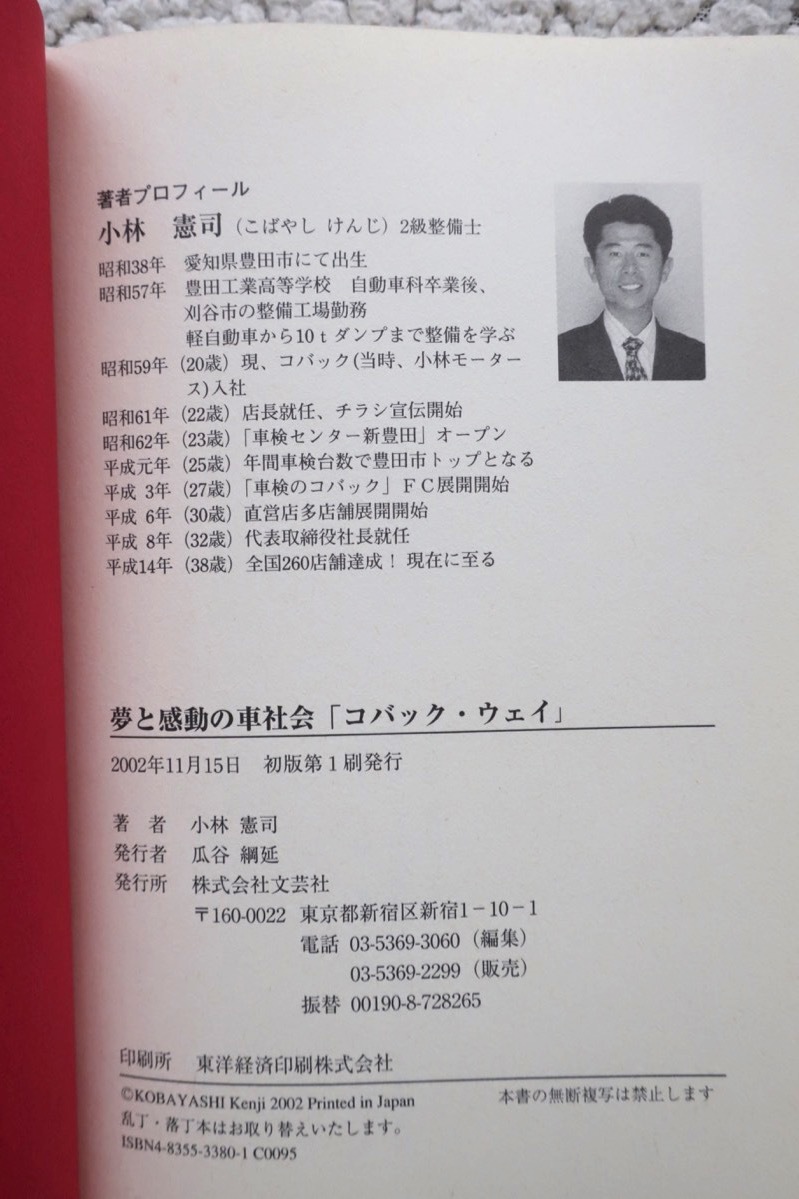 著者プロフィール
小林 憲司（こばやし けんじ）2級整備士
昭和38年 愛知県豊田市にて出生
昭和57年 豊田工業高等学校 自動車科卒業後、
刈谷市の整備工場勤務
軽自動車から10tダンプまで整備を学ぶ
昭和59年（20歳）現、コバック(当時、小林モーター
ス)入社
昭和61年（22歳）店長就任、チラシ宣伝開始
昭和62年（23歳）「車検センター新豊田」オープン
平成元年（25歳）年間車検台数で豊田市トップとなる
平成 3年（27歳）「車検のコバック」FC展開開始
平成 6年（30歳）直営店多店舗展開開始
平成 8年（32歳）代表取締役社長就任
平成14年（38歳）全国260店舗達成！ 現在に至る
夢と感動の車社会「コバック・ウェイ」
2002年11月15日 初版第1刷発行
著 者 小林 憲司
発行者 瓜谷 綱延
発行所 株式会社文芸社
〒160-0022 東京都新宿区新宿1－10－1
電話 03-5369-3060（編集）
03-5369-2299（販売）
振替 00190-8-728265
印刷所 東洋経済印刷株式会社
©KOBAYASHI Kenji 2002 Printed in Japan 本書の無断複写は禁止します
乱丁・落丁本はお取り替えいたします。
ISBN4-8355-3380-1 C0095